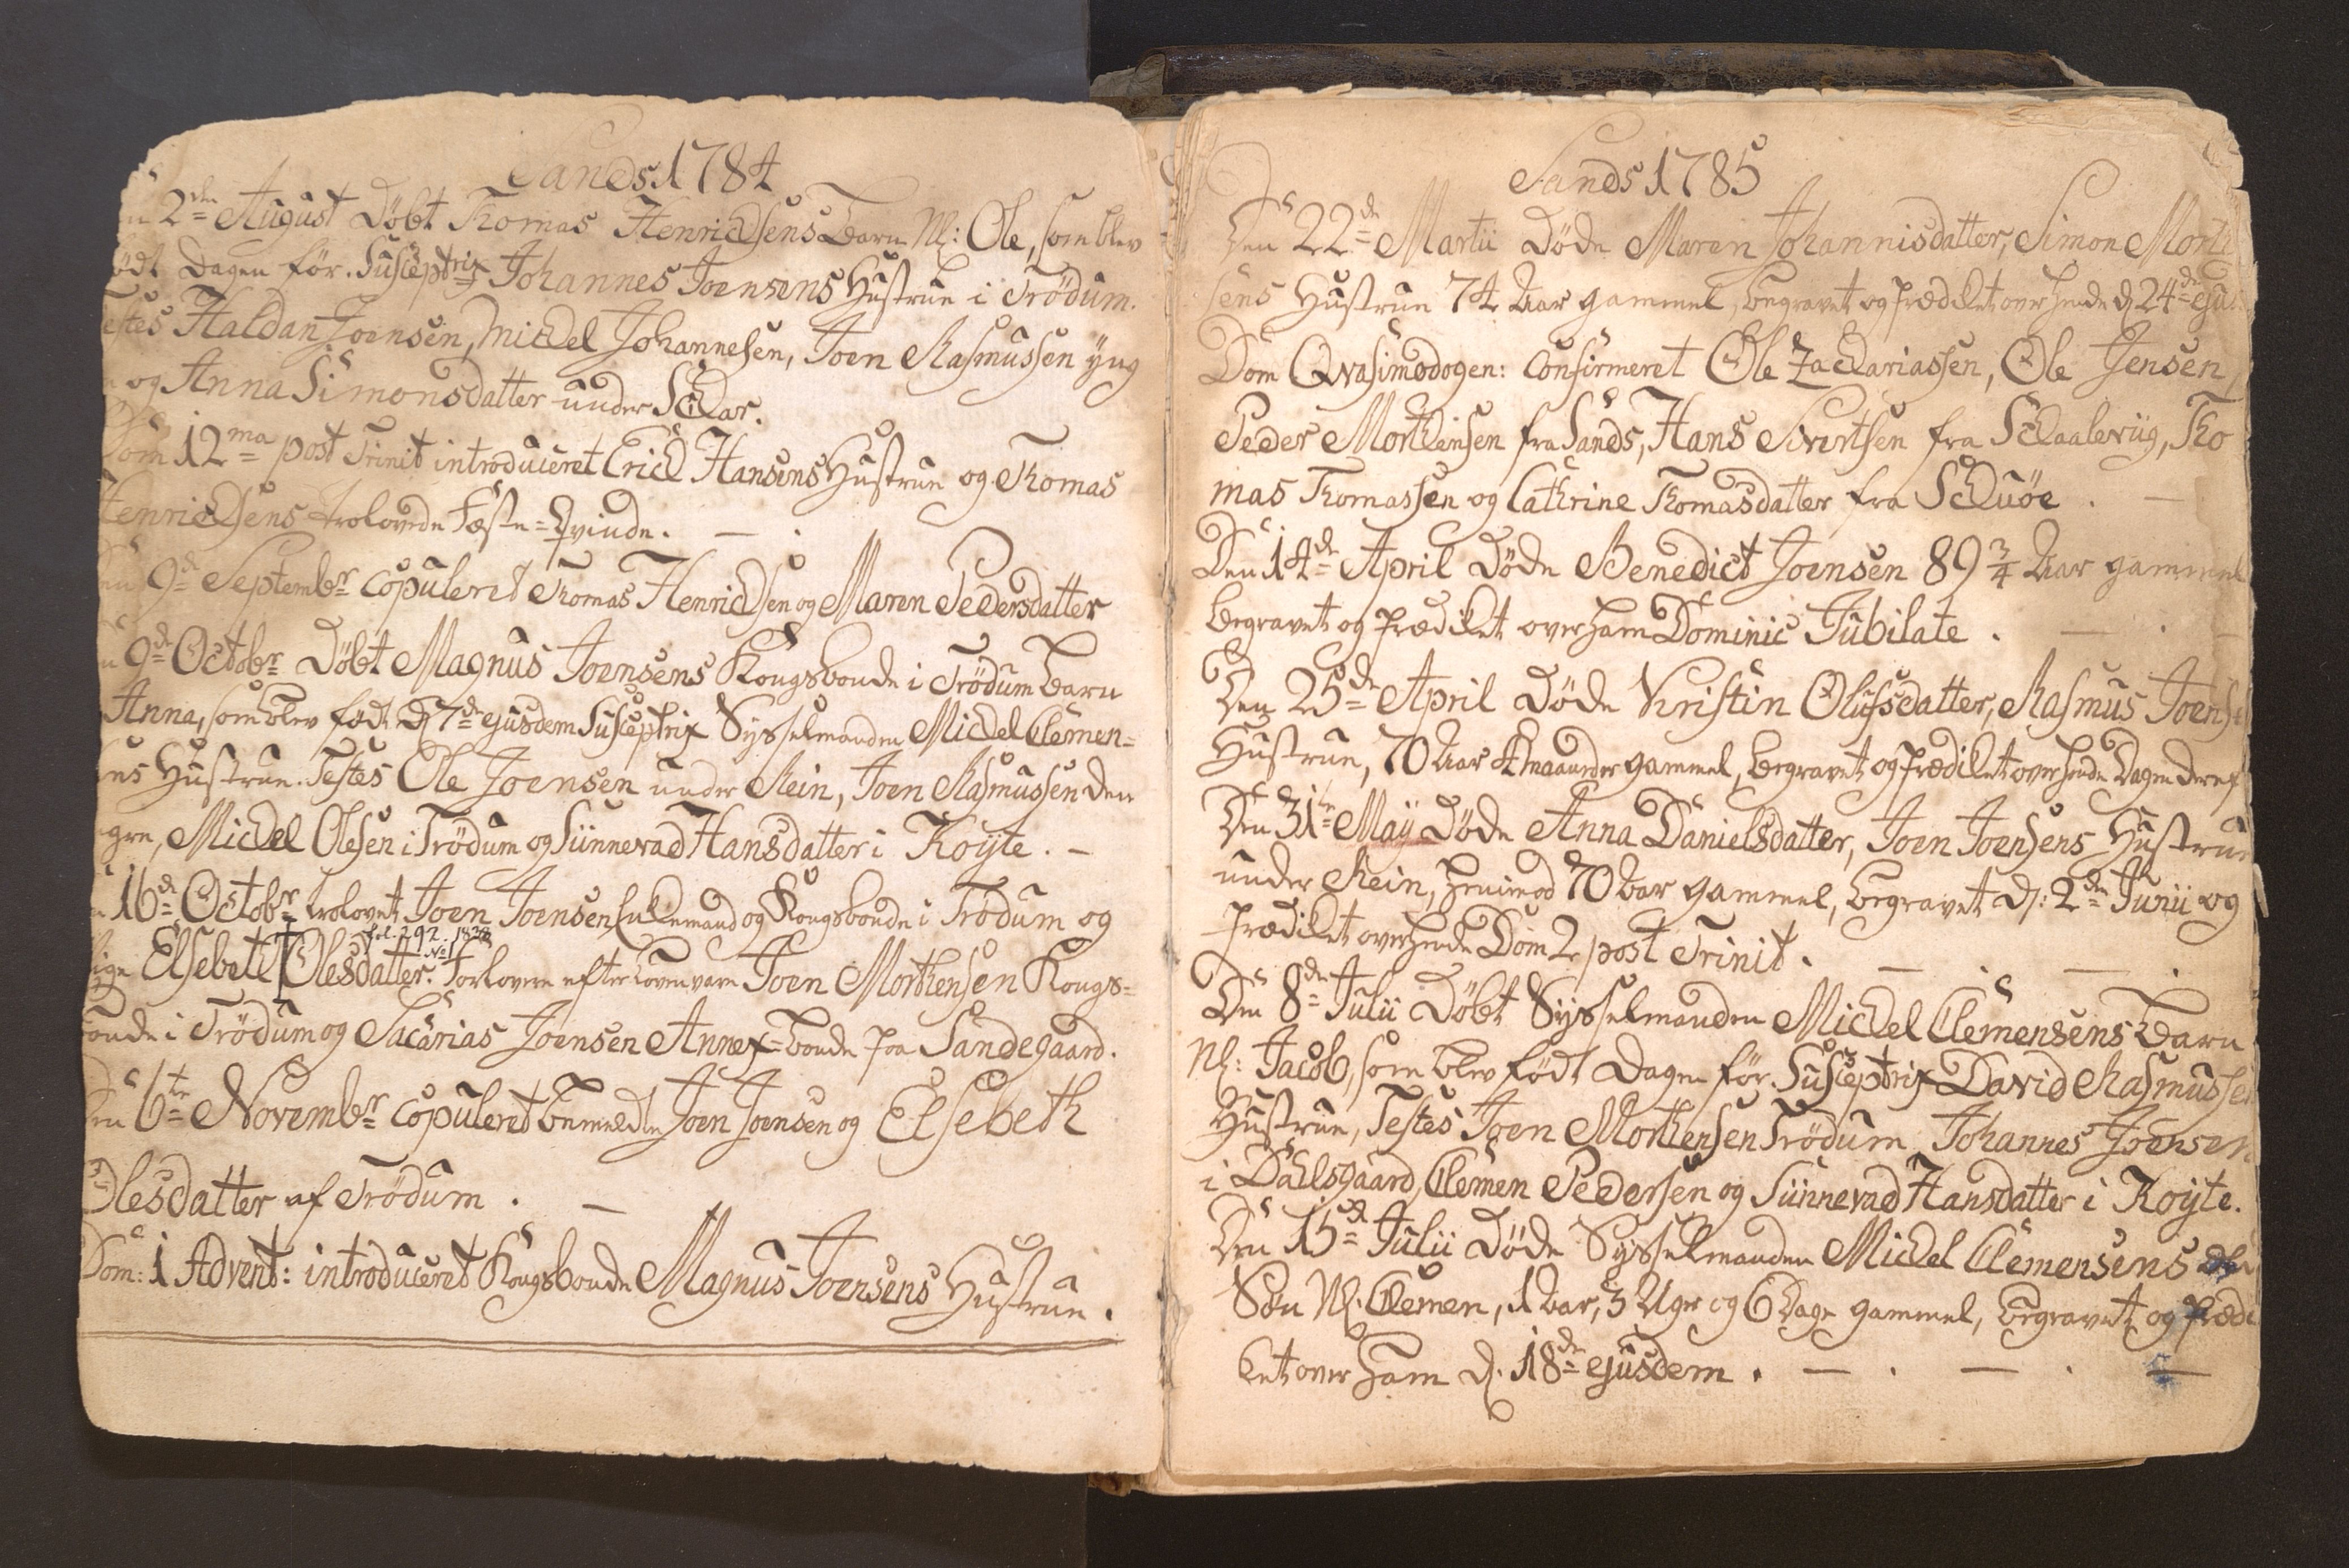 Sands 1784
2de August Döbt Thomas Henrichsens Barn Nl: Ole, som blev
födt Dagen för. Susceptrix Johannes Joensens Hustrue i Trödum.
Testes Haldan Joensen, Michel Johannesen, Joen Rasmussen yng
og Anna Simonsdatter under Schar.
Dom 12ma post Trinit introduceret Erich Hansens Hustrue og Thomas
Henrichsens trolovede Fæste-Qvinde. — .
9de Septembr copuleret Thomas Henrichsen og Maren Pedersdatter
9de Octobr Döbt Magnus Joensens Kongsbonde i Trödum Barn
Anna, som blev født d 7de ejusdem Susceptrix Sysselmanden Michel Clemen-
ens Hustrue. Testes Ole Joensen under Rein, Joen Rasmussen den
yngre, Michel Olesen i Trödum og Sünnevad Hansdatter i Köyte. —
16de Octobr trolovet Joen Joensen Enkemand og Kongsbonde i Trödum og
fol. 292. 1828 No 1
Pige Elsebeth Olesdatter. Forlovere efter Loven vare Joen Morthensen Kongs-
bonde i Trödum og Sacarias Joensen Annex-bonde paa Sandegaard.
Den 6te Novembr copuleret bemeldte Joen Joensen og Elsebeth
Olesdatter af Trödum. —
Dom: 1 Advent: introduceret Kongsbonde Magnus Joensens Hustrue.
Sands 1785
Den 22de Martii Döde Maren Johannisdatter, Simon Morth
sens Hustrue 74 Aar gammel, begravet og Prædiket over hende d 24de ejus
Dom Qvasimodogen: confirmeret Ole Zachariassen, Ole Jensen
Peder Morthensen fra Sands, Hans Sivertsen fra Schaalevüg, Tho
mas Thomassen og Cathrine Thomasdatter fra Schuöe. —
Den 14de April Döde Benedict Joensen 89 3/4 Aar gammel
begravet og Prædiket over ham Dominic Jubilate. — .
Den 25de April Döde Kristin Olufsdatter, Rasmus Joens
Hustrue, 70 Aar 4 maaneder gammel, begravet og Prædiket over hende Dagen deref
Den 31te May Döde Anna Danielsdatter, Joen Joensens Hustrue
under Rein, henimod 70 Aar gammel, begravet d: 2den Junii og
Prædiket over hende Dom 2 post Trinit. — . — .
Den 8de Julii Döbt Sysselmanden Michel Clemensens Barn
Nl: Jacob, som blev født Dagen för. Susceptrix David Rasmussen
Hustrue, Testes Joen Morthensen Trödum, Johannes Joensen
i Dahlsgaard, Clemen Pedersen og Sünnevad Hansdatter i Köyte.
Den 15de Julii Döde Sysselmanden Michel Clemensens
Søn Nl: Clemen, 1 Aar, 3 Uger og 6 Dage gammel, begravet og Prædi
ket over ham d. 18de ejusdem. — . — . —